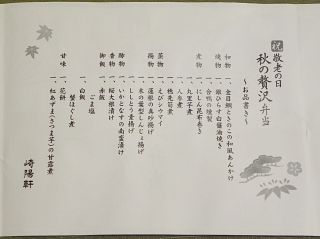 祝 敬老の日
秋の贅沢弁当
～お品書き～
和物 一、金目鯛ときのこの和風あんかけ
焼物 一、銀ひらす白醤油焼き
一、合鴨の燻製
煮物 一、にしん昆布巻き
一、丸里芋煮
一、人参煮
一、穂先筍煮
蒸物 一、えびシウマイ
揚物 一、蓮根の真砂揚げ
一、末の葉型しんじょ揚げ
一、ししとう素揚げ
酢物 一、いかとなすの南蛮漬け
香物 一、桜大根漬け
御飯 一、赤飯
ごま塩
一、白飯
蟹ほぐし煮
甘味 一、花餅
一、紅あずま(さつま芋)の甘露煮
崎陽軒